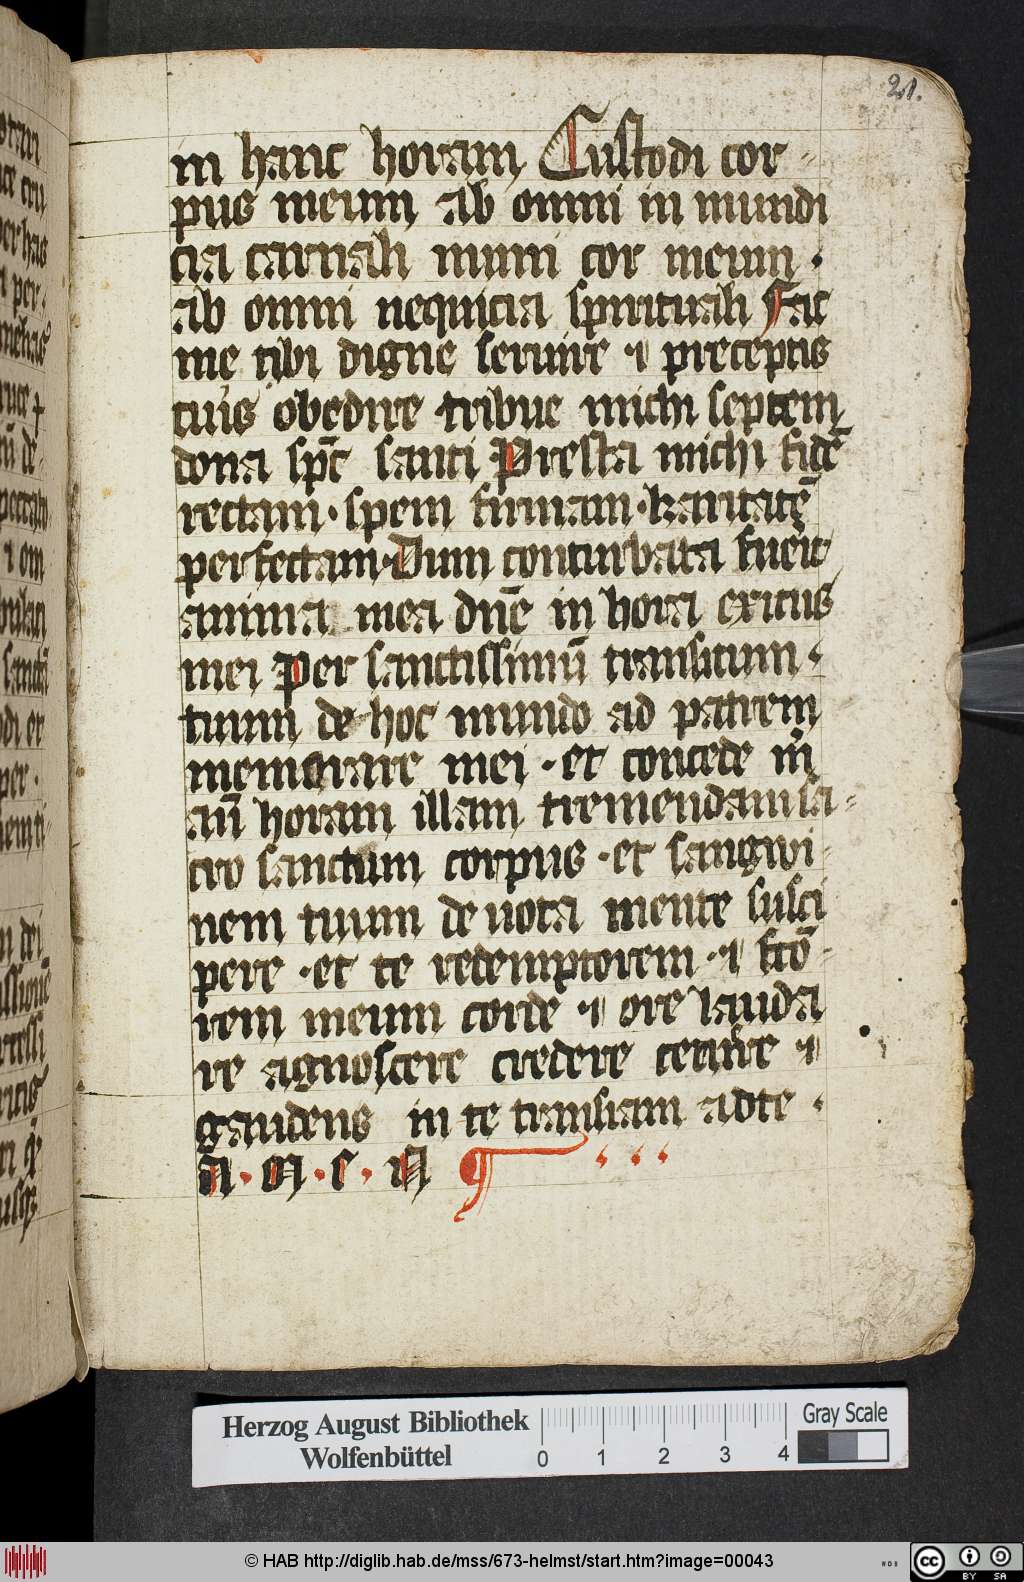 21.
in hanc horam Custodi cor-
pus meum ab omni in mundi
cia carnali muni cor meum ·
ab omni nequicia spirituali Fac
me tibi digne seruire ⁊ preceptis
tuis obedire tribue michi septem
dona sp̄c sancti Presta michi fidē
rectam · spem firmam · karitatē
perfectam · Dum conturbata fuerit
anima mea dn̄e in hora exitus
mei Per sanctissimū transitum ·
tuum de hoc mundo ad patrem
memorare mei · et concede m̄
an̄ horam illam tremendam sa-
cro sanctum corpus · et sangwi-
nem tuum deuota mente susci
pere · et te redemptorem · ⁊ fctō-
rem meum corde ⁊ ore lauda
re agnoscere credere cernere ⁊
gaudens in te transiam ad te ·
A · M · E · N
Herzog August Bibliothek
Wolfenbüttel
0 1 2 3 4
Gray Scale
© HAB http://diglib.hab.de/mss/673-helmst/start.htm?image=00043
WDB
cc BY SA